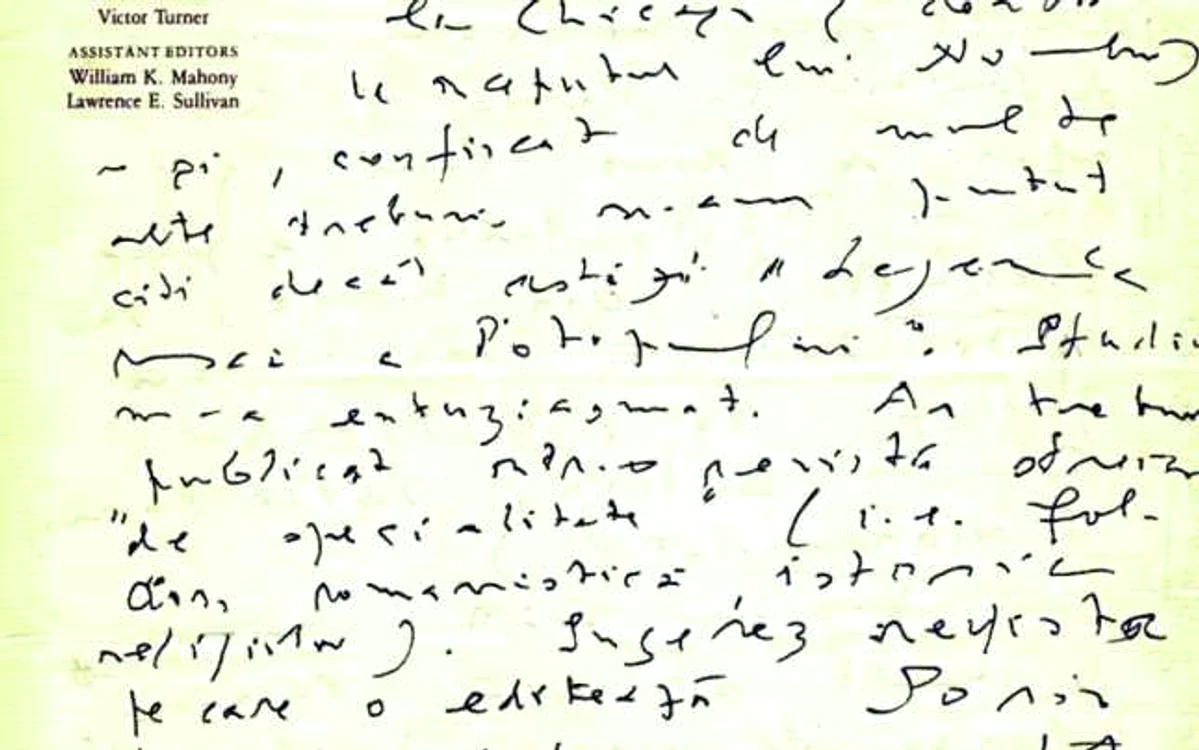 Victor Turner
ASSISTANT EDITORS
William K. Mahony
Lawrence E. Sullivan
la Chicago (
la sfârșitul lui
și, confiscat de multe
alte treburi, n-am putut
citi decât astăzi "Legenda
a Potopului". Studiu
m-a entuziasmat. Ar trebui
publicat într-o revistă
"de specialitate" (i.e. fol-
romanistică, istoria
religiilor). Sugerez revista
pe care o editează